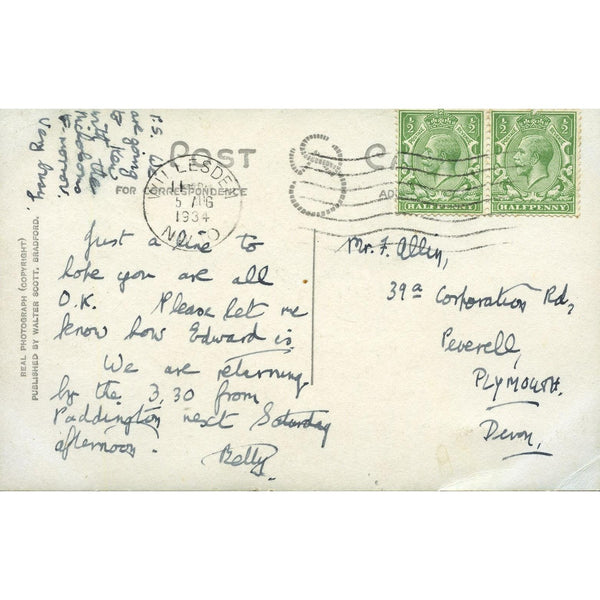 P.S. We
are going
to Kay
in the
tomorrow.
Very busy
POST CARD
FOR CORRESPONDENCE
WILLESDEN
5 AUG
1934
½ ½
HALFPENNY
½ ½
HALFPENNY
Just a line to
hope you are all
O.K. Please let me
know how Edward is.
We are returning
by the 3.30 from
Paddington next Saturday
afternoon.
Betty.
Mr. F. Allin,
39a Corporation Rd,
Peverell,
PLYMOUTH.
Devon,
REAL PHOTOGRAPH (COPYRIGHT)
PUBLISHED BY WALTER SCOTT, BRADFORD.